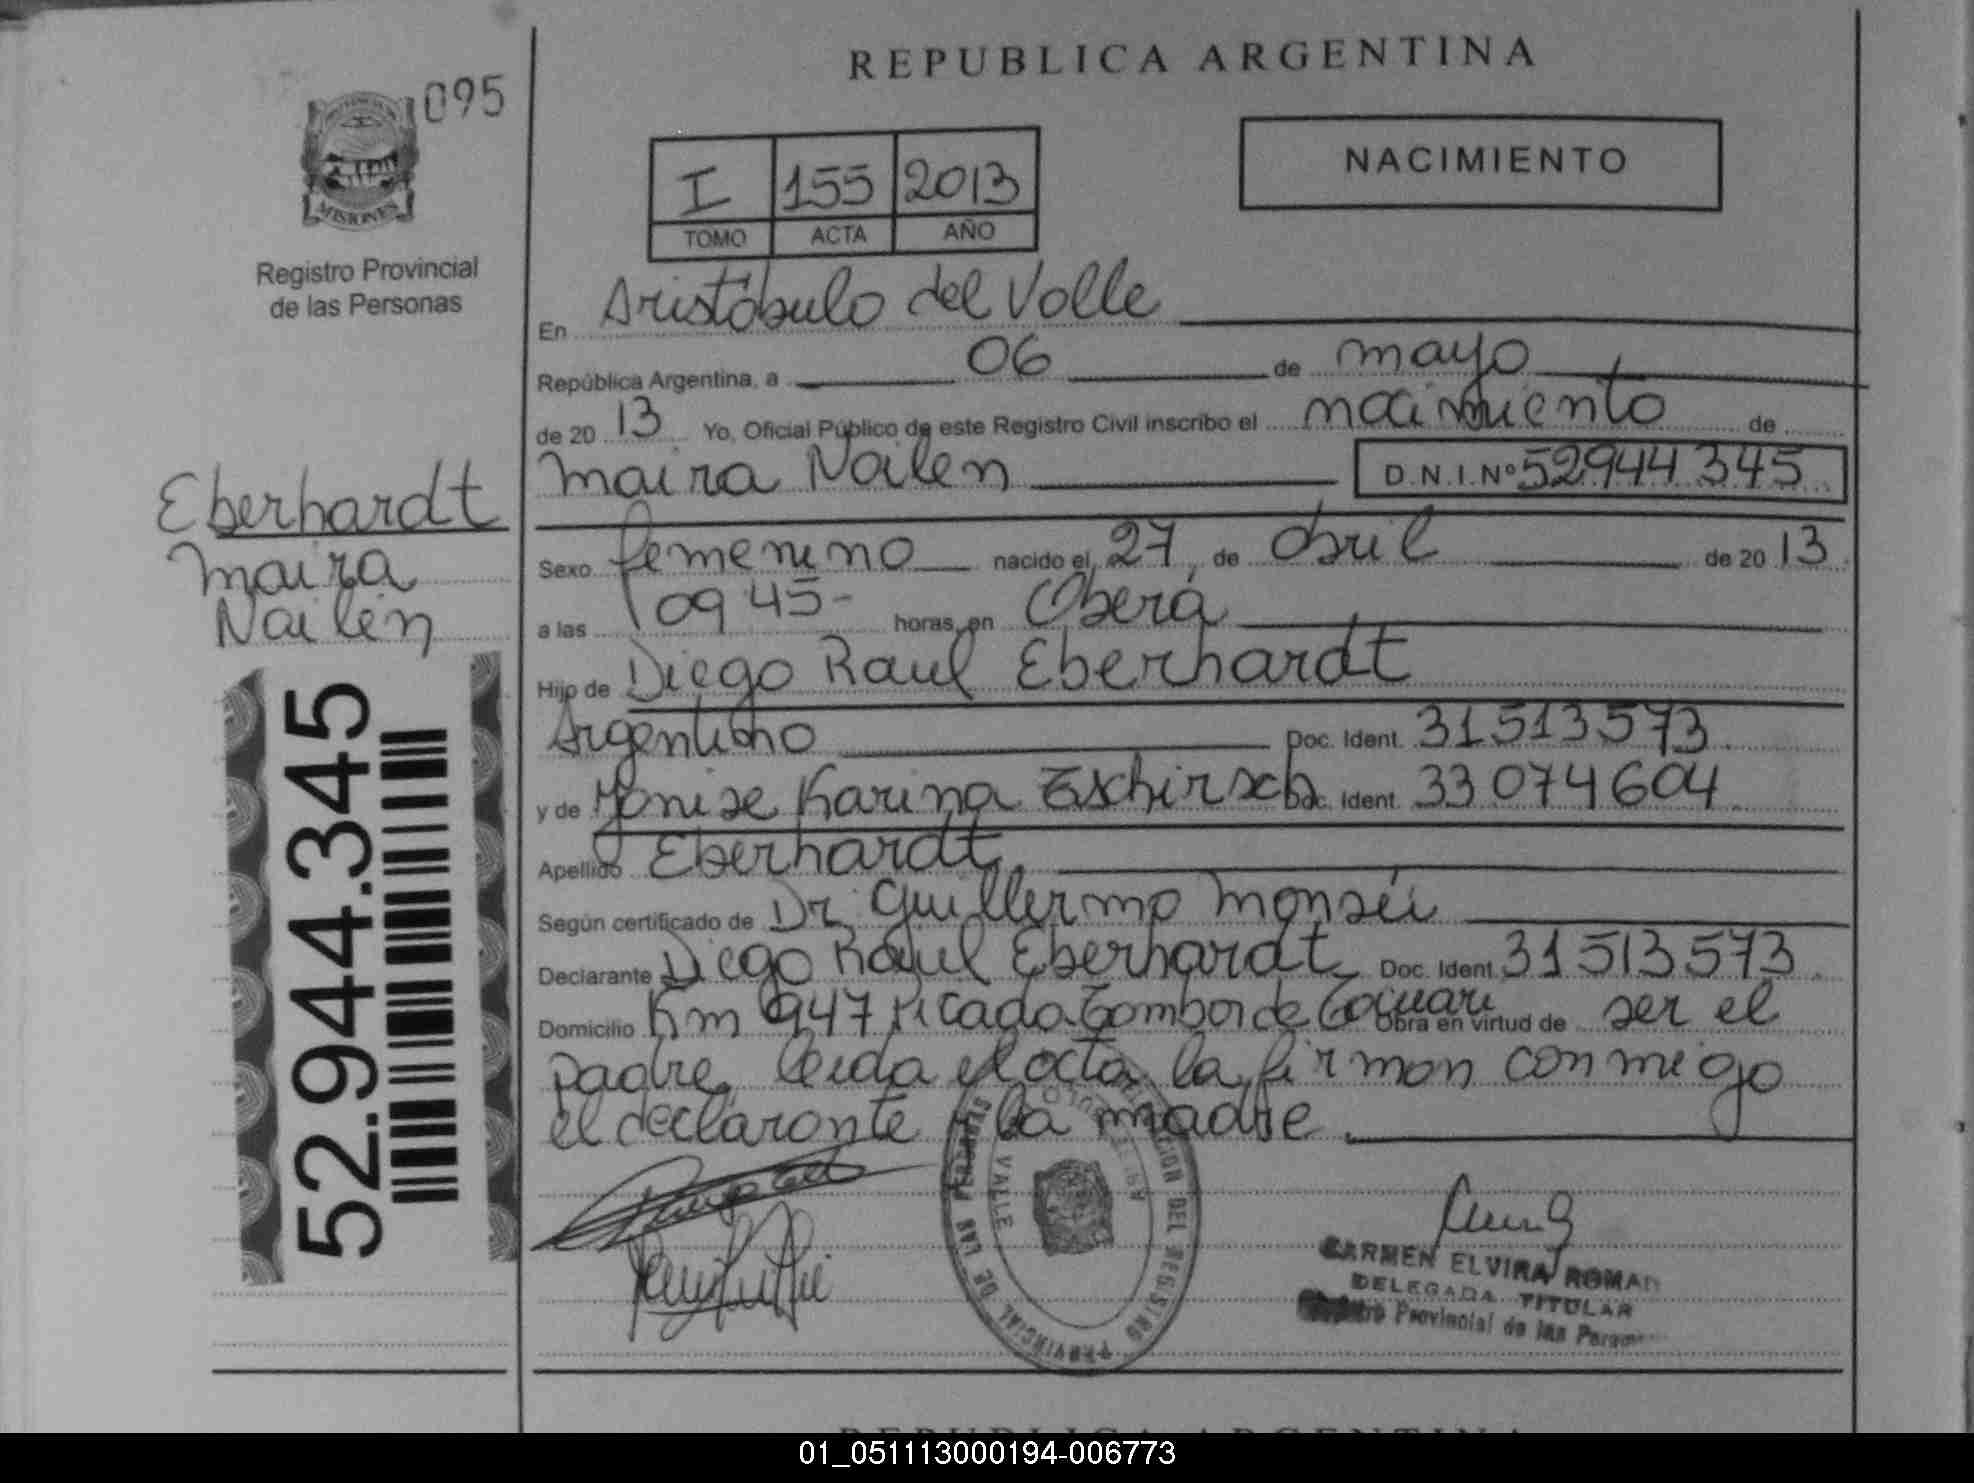 REPUBLICA ARGENTINA
095
NACIMIENTO
I 155 2013
TOMO ACTA AÑO
MISIONES
Registro Provincial
de las Personas
En Aristóbulo del Valle
República Argentina, a 06 de mayo
de 20 13 Yo, Oficial Público de este Registro Civil inscribo el nacimiento de
Maira Nailen D.N.I. Nº 52944345
Eberhardt
Maira
Nailén
Sexo femenino nacido el 27 de Abril de 20 13
a las 09 45- horas, en Oberá
Hijo de Diego Raul Eberhardt
Argentino Doc. Ident. 31513573
y de Karina Doc. Ident. 33074604
Apellido Eberhardt
Según certificado de Dr. Guillermo
Declarante Diego Raul Eberhardt Doc. Ident. 31513573
Domicilio Km 947 Picada Obra en virtud de ser el
padre, leida el acta, la firman conmigo
el declarante y la madre
52.944.345
VALLE
PROVINCIAL DE LAS PERSONAS
DEL REGISTRO
CARMEN ELVIRA ROMAN
DELEGADA TITULAR
Provincial de las
REPUBLICA ARGENTINA
01_051113000194-006773